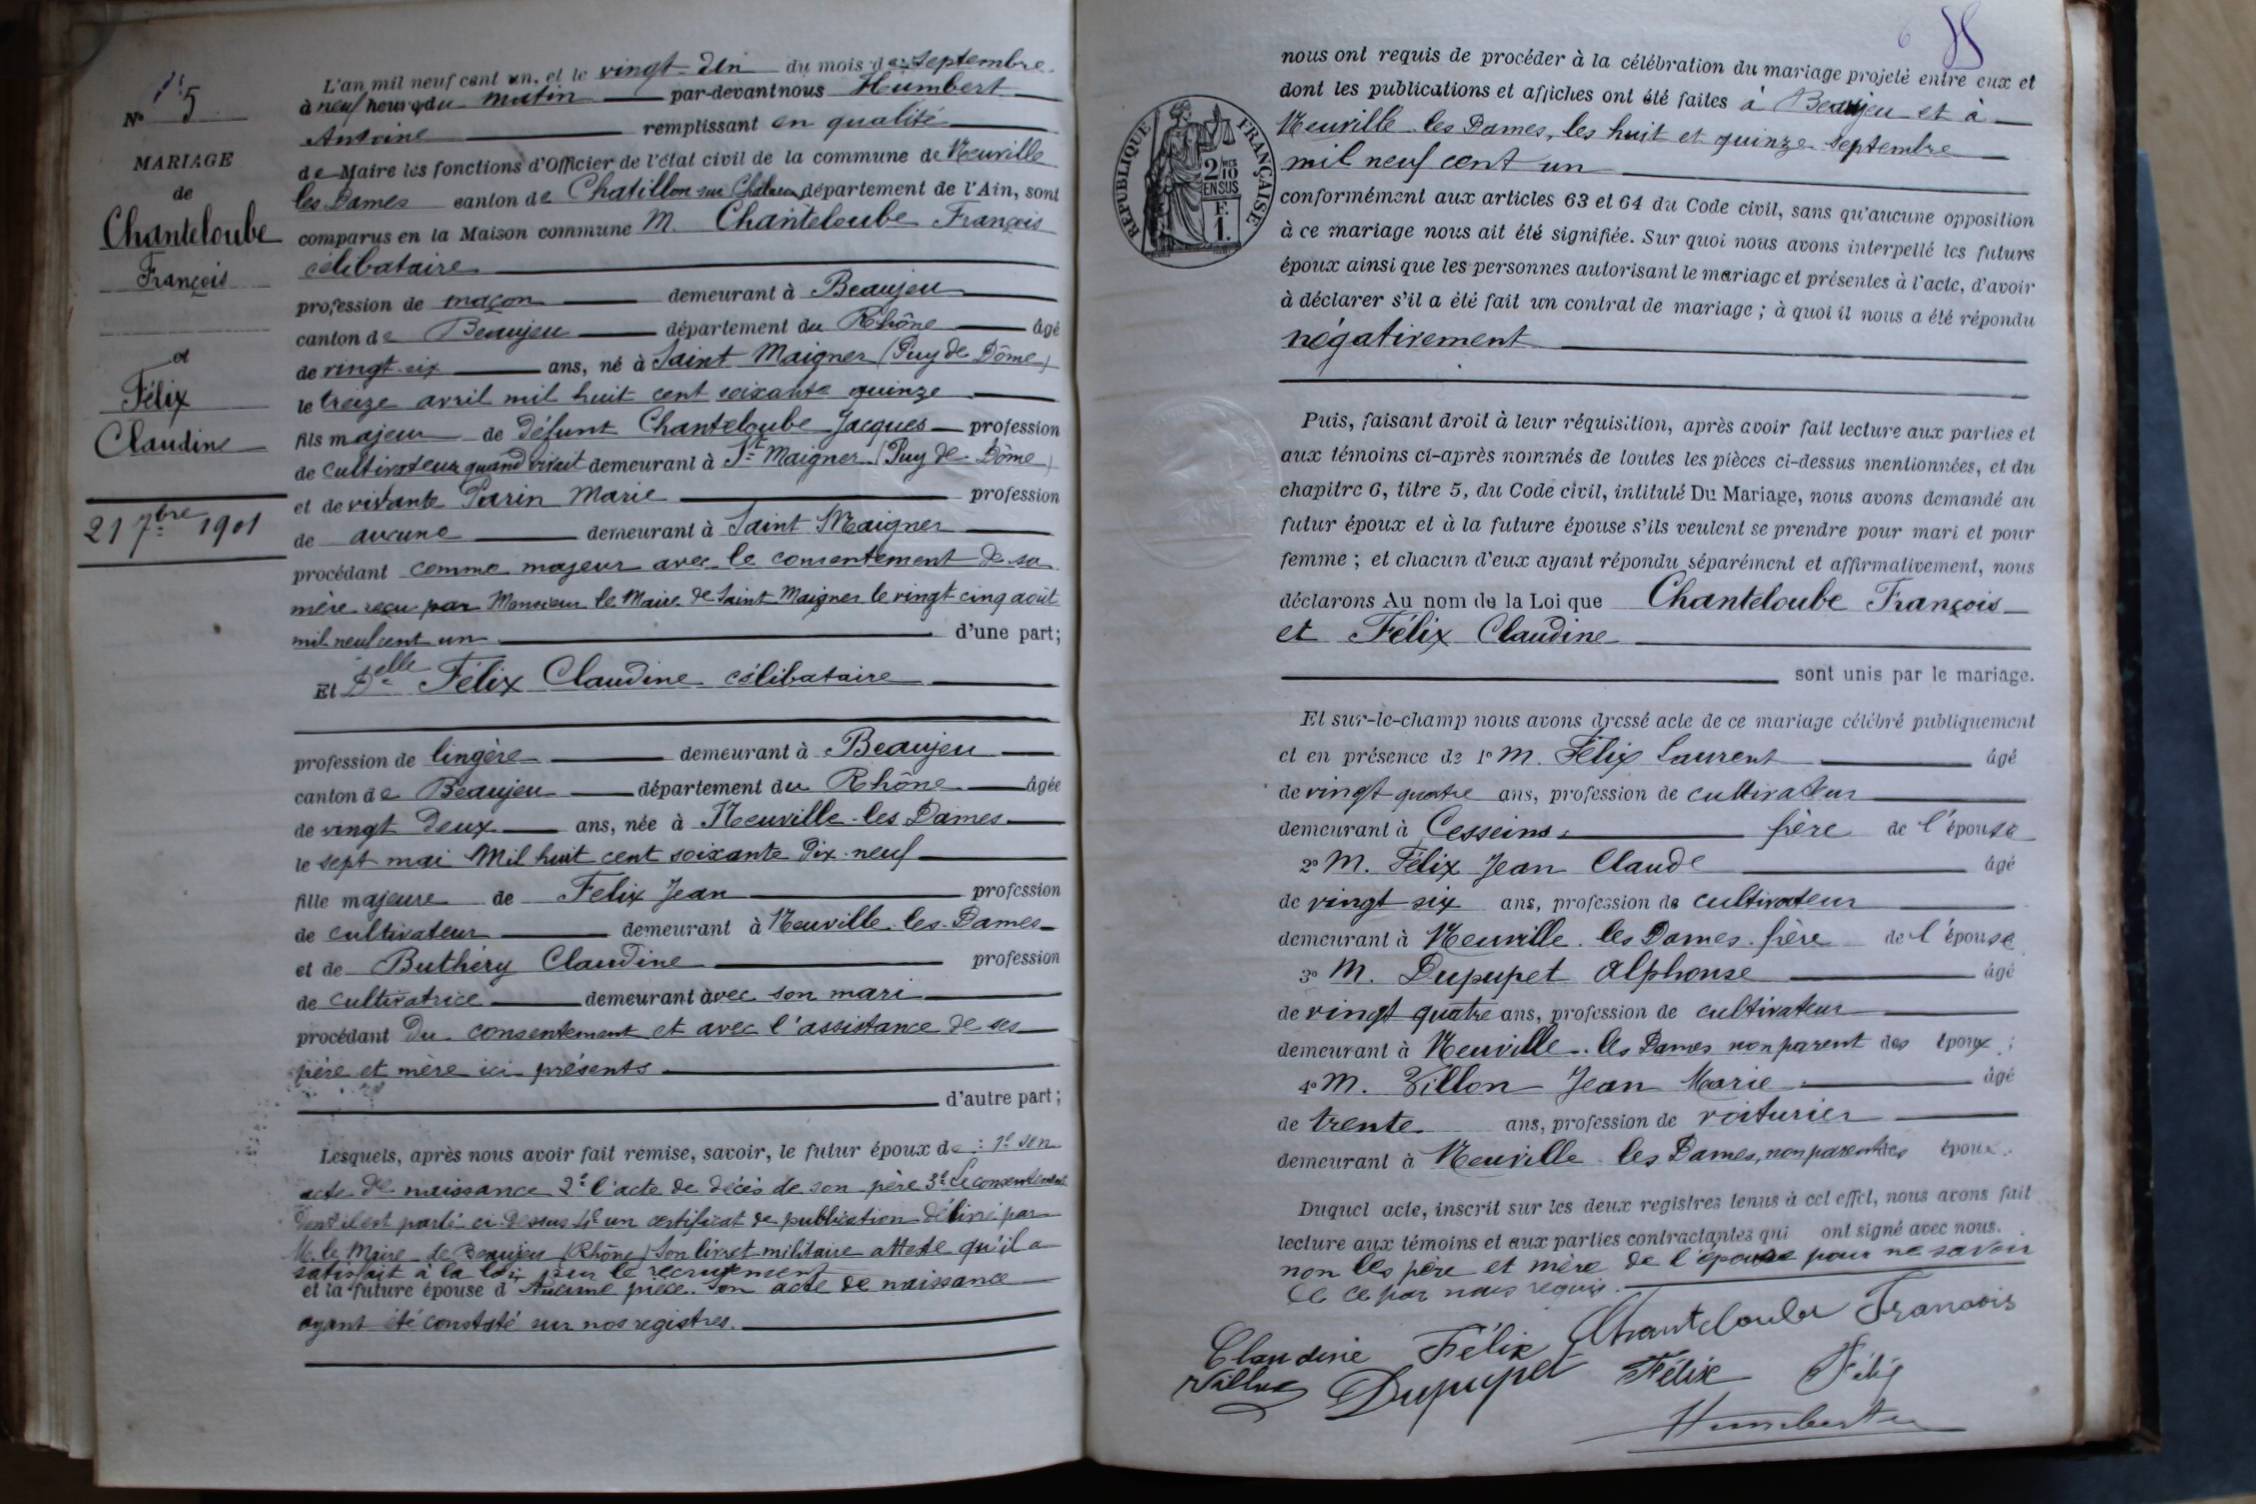 N° 5
MARIAGE
de
Chanteloube
François
et
Félix
Claudine
21 7bre 1901
L'an mil neuf cent un, et le vingt-un du mois de septembre
à neuf heures du matin par-devant nous Humbert
Antoine remplissant en qualité
de Maire les fonctions d'Officier de l'état civil de la commune de Neuville
les Dames canton de Chatillon sur Chalaronne département de l'Ain, sont
comparus en la Maison commune M. Chanteloube François
célibataire
profession de maçon demeurant à Beaujeu
canton de Beaujeu département du Rhône âgé
de vingt-six ans, né à Saint Maigner (Puy de Dôme)
le treize avril mil huit cent soixante quinze
fils majeur de défunt Chanteloube Jacques profession
de cultivateur quand vivait demeurant à St Maigner (Puy de Dôme)
et de vivante Parin Marie profession
de aucune demeurant à Saint Maigner
procédant comme majeur avec le consentement de sa
mère reçu par Monsieur le Maire de Saint Maigner le vingt cinq août
mil neuf cent un d'une part;
Et Delle Félix Claudine célibataire
profession de lingère demeurant à Beaujeu
canton de Beaujeu département du Rhône âgée
de vingt deux ans, née à Neuville-les Dames
le sept mai Mil huit cent soixante dix-neuf
fille majeure de Félix Jean profession
de cultivateur demeurant à Neuville-les-Dames
et de Buthéry Claudine profession
de cultivatrice demeurant avec son mari
procédant du consentement et avec l'assistance de ses
père et mère ici présents
d'autre part;
Lesquels, après nous avoir fait remise, savoir, le futur époux de : 1° son
acte de naissance 2° l'acte de décès de son père 3° Le consentement
dont il est parlé ci-dessus 4° un certificat de publication délivré par
M. le Maire de Beaujeu (Rhône) Son livret militaire atteste qu'il a
satisfait à la loi sur le recrutement
et la future épouse d'Aucune pièce. Son acte de naissance
ayant été constaté sur nos registres.
nous ont requis de procéder à la célébration du mariage projeté entre eux et
dont les publications et affiches ont été faites à Beaujeu et à
Neuville-les Dames, les huit et quinze septembre
mil neuf cent un
REPUBLIQUE FRANÇAISE
2/10
EN SUS
F.
1.
conformément aux articles 63 et 64 du Code civil, sans qu'aucune opposition
à ce mariage nous ait été signifiée. Sur quoi nous avons interpellé les futurs
époux ainsi que les personnes autorisant le mariage et présentes à l'acte, d'avoir
à déclarer s'il a été fait un contrat de mariage ; à quoi il nous a été répondu
négativement
Puis, faisant droit à leur réquisition, après avoir fait lecture aux parties et
aux témoins ci-après nommés de toutes les pièces ci-dessus mentionnées, et du
chapitre 6, titre 5, du Code civil, intitulé Du Mariage, nous avons demandé au
futur époux et à la future épouse s'ils veulent se prendre pour mari et pour
femme ; et chacun d'eux ayant répondu séparément et affirmativement, nous
déclarons Au nom de la Loi que Chanteloube François
et Félix Claudine
sont unis par le mariage.
Et sur-le-champ nous avons dressé acte de ce mariage célébré publiquement
et en présence de 1° M. Félix Laurent âgé
de vingt quatre ans, profession de cultivateur
demeurant à Cesseins frère de l'épouse
2° M. Félix Jean Claude âgé
de vingt six ans, profession de cultivateur
demeurant à Neuville les Dames frère de l'épouse
3° M. Dupupet Alphonse âgé
de vingt quatre ans, profession de cultivateur
demeurant à Neuville-les Dames non parent des époux ;
4° M. Villon Jean Marie âgé
de trente ans, profession de voiturier
demeurant à Neuville les Dames, non parent des époux.
Duquel acte, inscrit sur les deux registres tenus à cet effet, nous avons fait
lecture aux témoins et aux parties contractantes qui ont signé avec nous.
non les père et mère de l'épouse pour ne savoir
de ce par nous requis.
Claudine Félix Chanteloube François
Villon Dupupet Félix Félix
Humbert